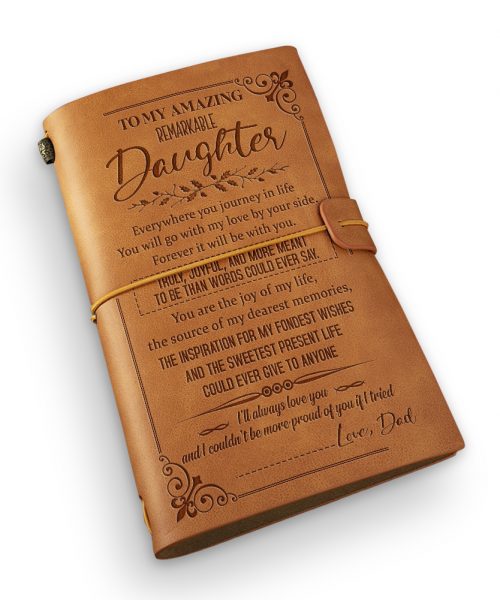 TO MY AMAZING
REMARKABLE
Daughter
Everywhere you journey in life
You will go with my love by your side,
Forever it will be with you.
TRULY, JOYFUL, AND MORE MEANT
TO BE THAN WORDS COULD EVER SAY.
You are the joy of my life,
the source of my dearest memories,
THE INSPIRATION FOR MY FONDEST WISHES
AND THE SWEETEST PRESENT LIFE
COULD EVER GIVE TO ANYONE
I'll always love you
and I couldn't be more proud of you if I tried
Love, Dad